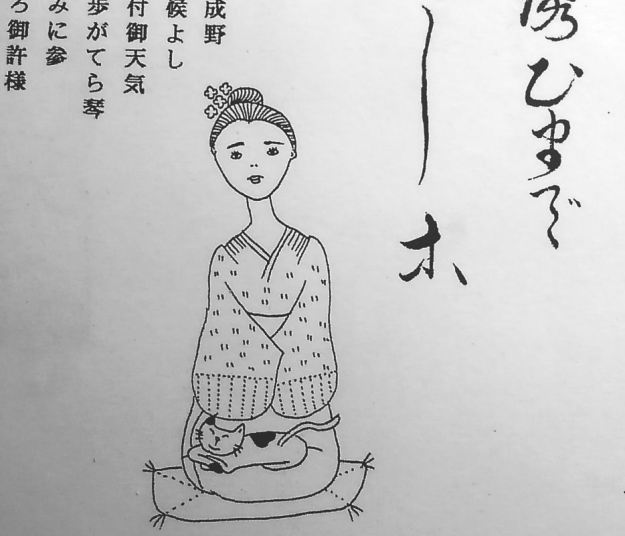 ひまで
ー ホ
成野
候よし
付御天気
歩がてら琴
みに参
ろ御許様